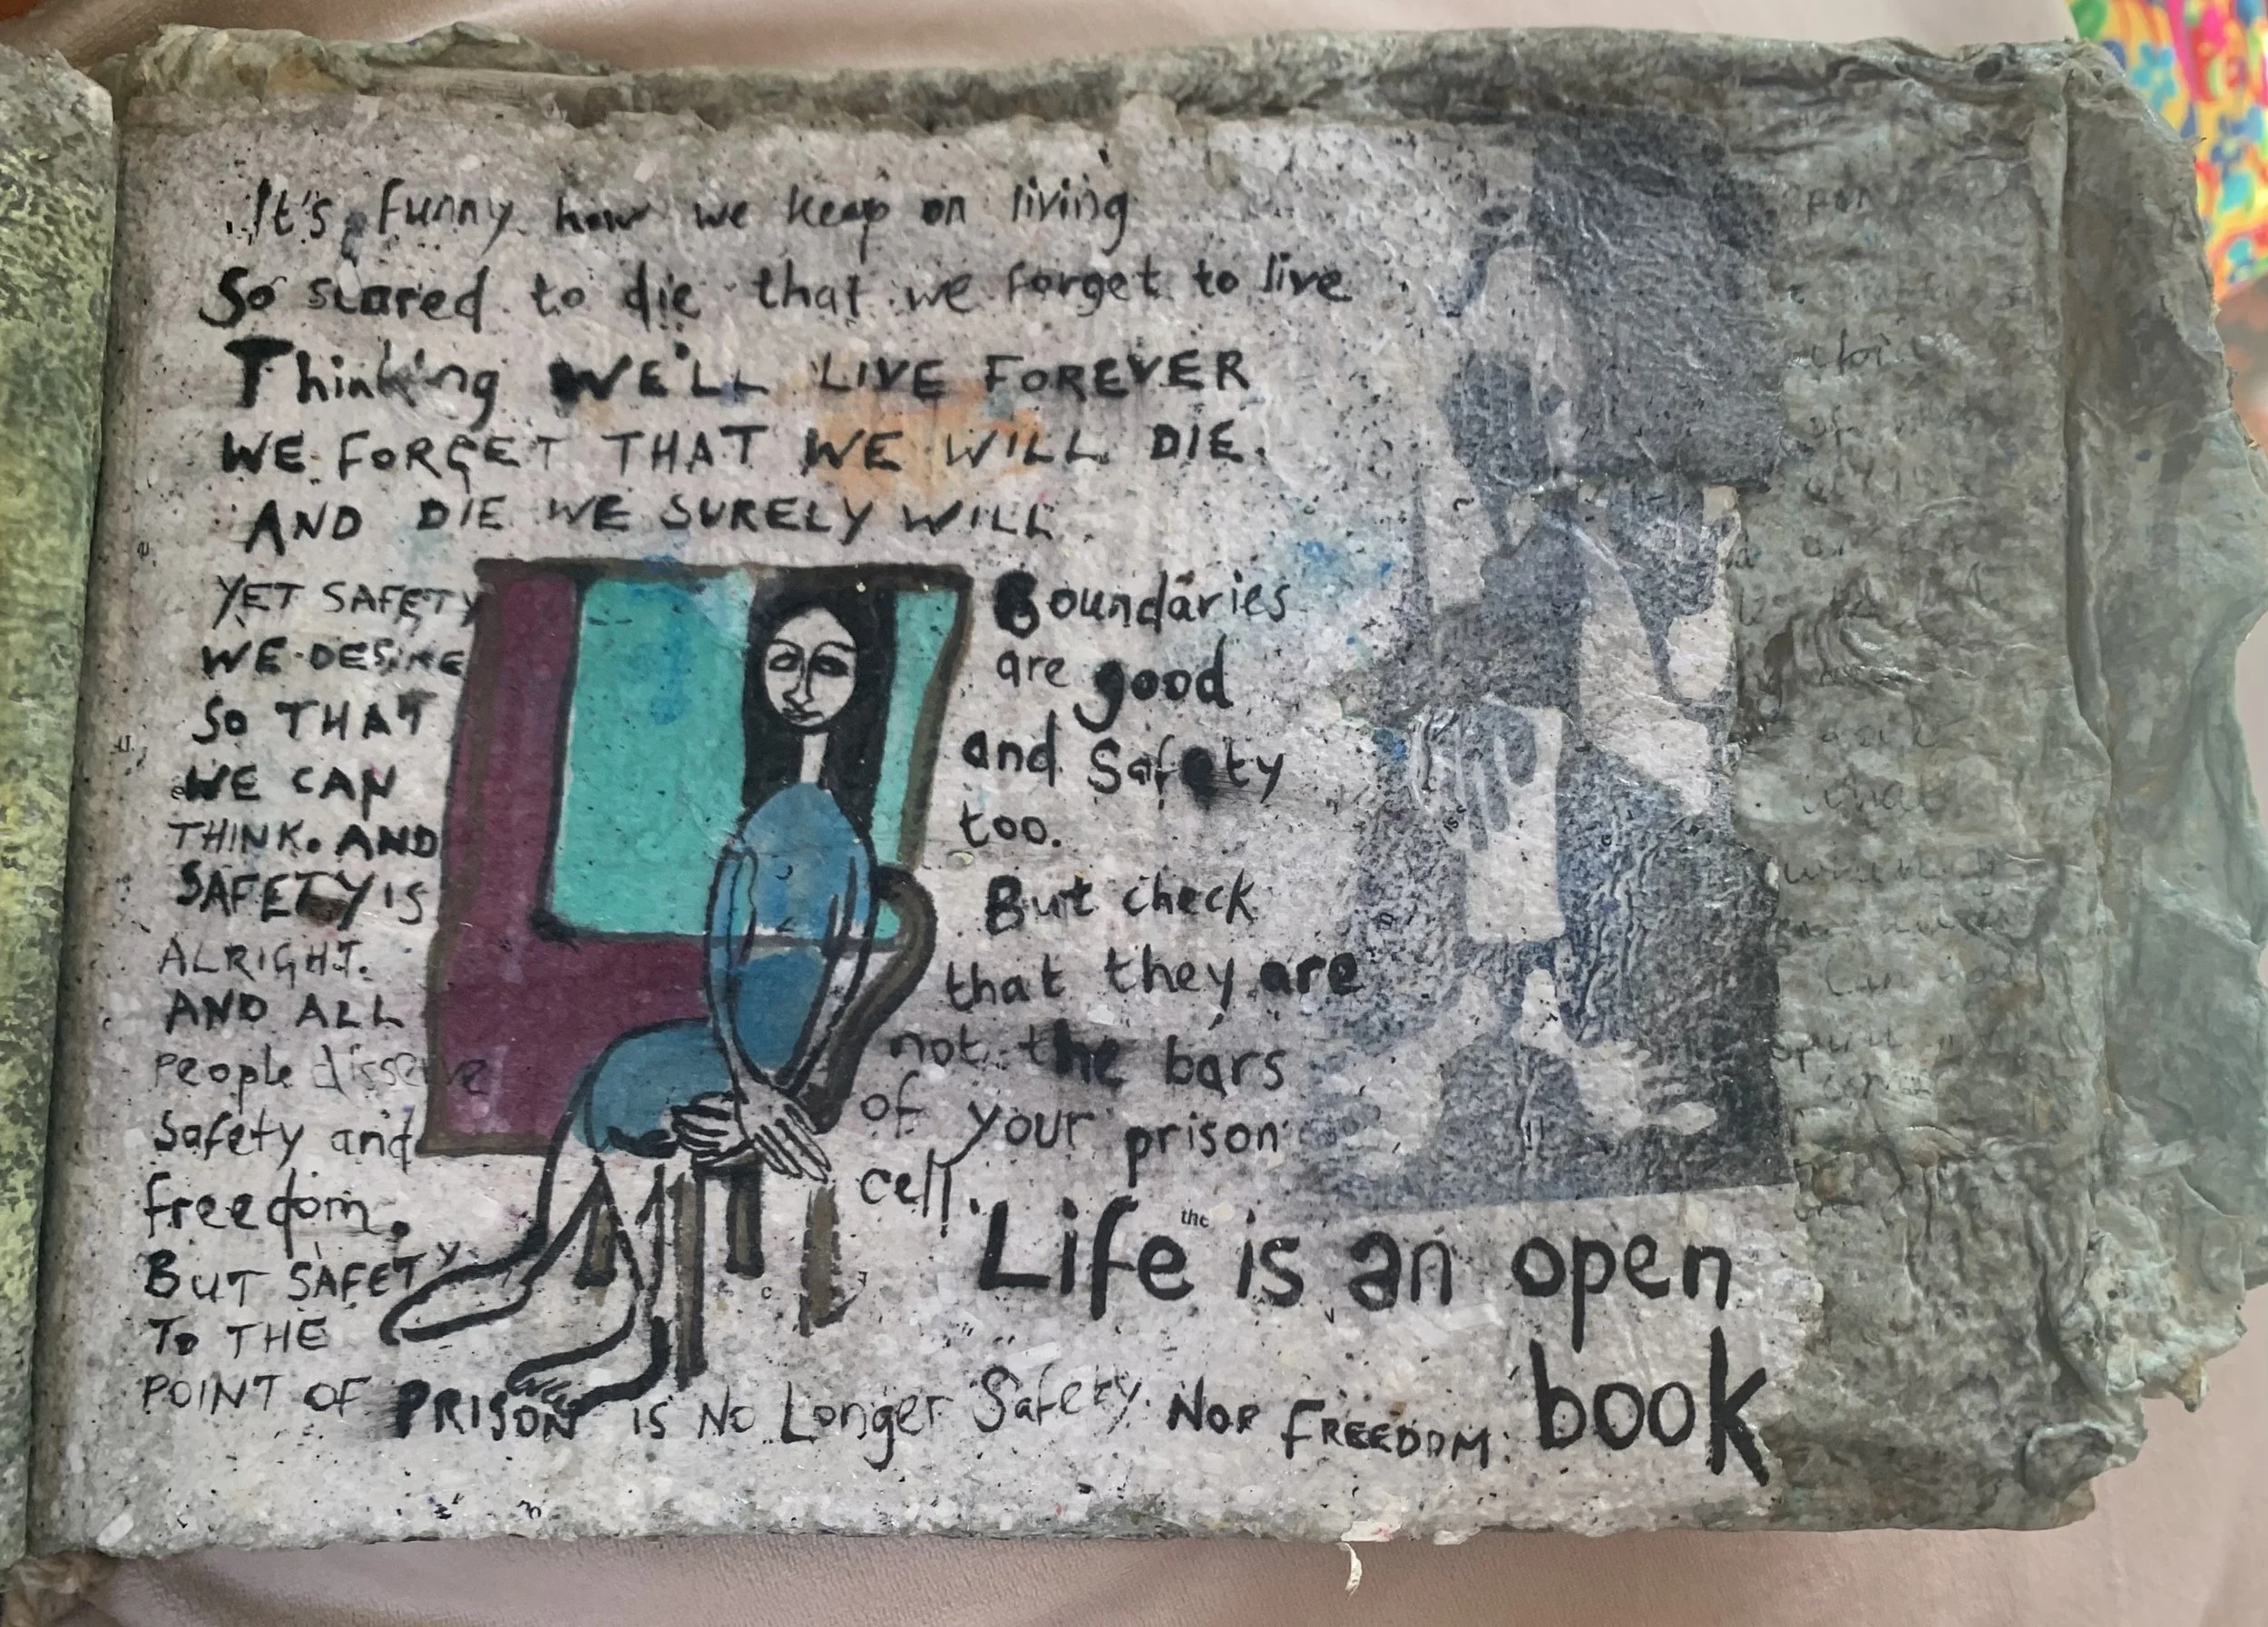 It's funny how we keep on living
So scared to die that we forget to live
Thinking WE'LL LIVE FOREVER
WE FORGET THAT WE WILL DIE.
AND DIE WE SURELY WILL.
YET SAFETY
WE DESIRE
SO THAT
WE CAN
THINK. AND
SAFETY IS
ALRIGHT.
AND ALL
people disserve
safety and
freedom.
BUT SAFETY
TO THE
POINT OF PRISON IS NO LONGER SAFETY NOR FREEDOM.
Boundaries
are good
and Safety
too.
But check
that they are
not the bars
of your prison
cell.
the
Life is an open
book
what